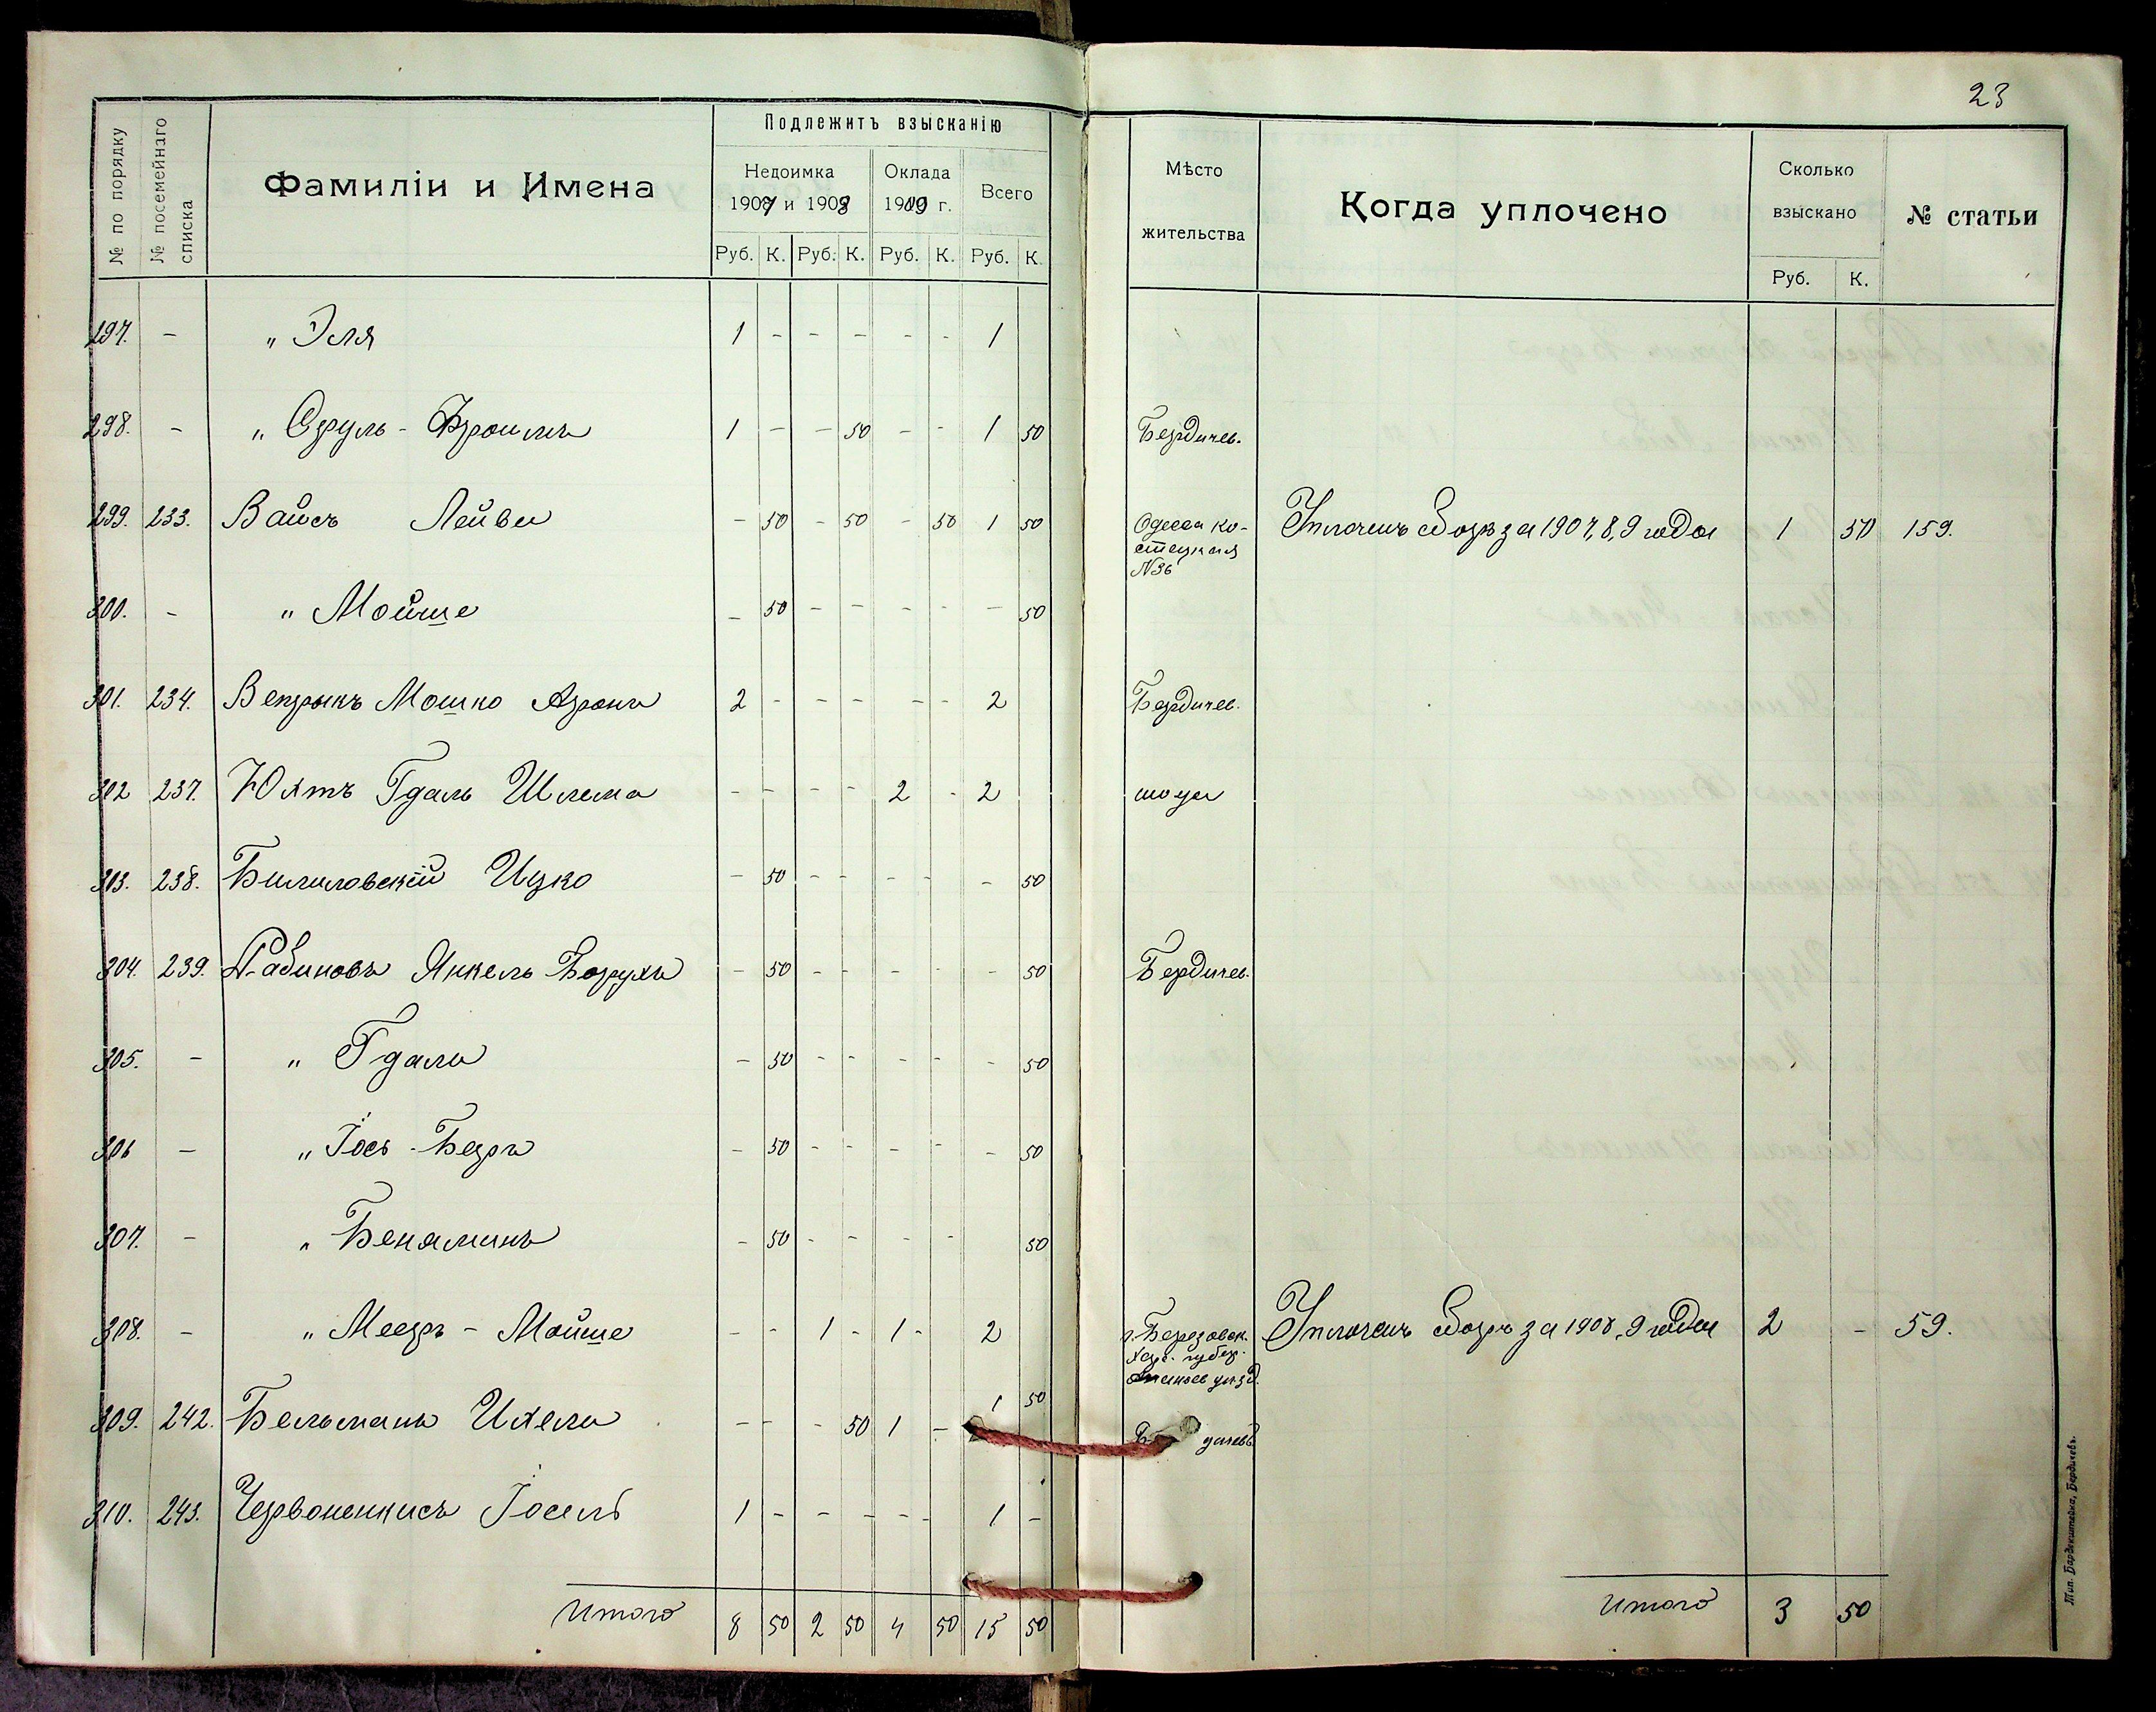 23
№ по порядку
№ посемейнаго списка
Фамиліи и Имена
Подлежитъ взысканію
Недоимка
1907 и 1908
Оклада
1909 г.
Всего
Руб. К. Руб. К. Руб. К. Руб. К.
Мѣсто
жительства
Когда уплочено
Сколько
взыскано
Руб. К.
№ статьи
297. - " Эля 1 - - - - - 1
298. - " Сруль - Фроимъ 1 - - 50 - - 1 50 Бердичев.
299. 233. Вайсъ Лейви - 50 - 50 - 50 1 50 Одесса Ко- Уплоченъ сборъ за 1907, 8, 9 года 1 50 159.
стецкая
№36
300. - " Мойше - 50 - - - - - 50
301. 234. Вепрыкъ Мошко Аронъ 2 - - - - - 2 Бердичев.
302 237. Юхтъ Гдаль Шлема - - - - 2 - 2
303. 238. Билиловскій Ицко - 50 - - - - - 50
304. 239. Рабиновъ Янкель Борухъ - 50 - - - - - 50 Бердичев.
305. - " Гдаль - 50 - - - - - 50
306 - " Іось - Беръ - 50 - - - - - 50
307. - " Беняминъ - 50 - - - - 50
308. - " Мееръ - Мойше - - 1 - 1 - 2 Березовск. Уплоченъ сборъ за 1908, 9 года 2 - 59.
Хер. губер.
Ананьев уѣзд.
309. 242. Бельманъ Ихель - - - 50 1 - 1 50
310. 243. Червоненкисъ Іосель 1 - - - - - 1 -
Итого 8 50 2 50 4 50 15 50
Итого 3 50
Тип. Барденштейна, Бердичевъ.